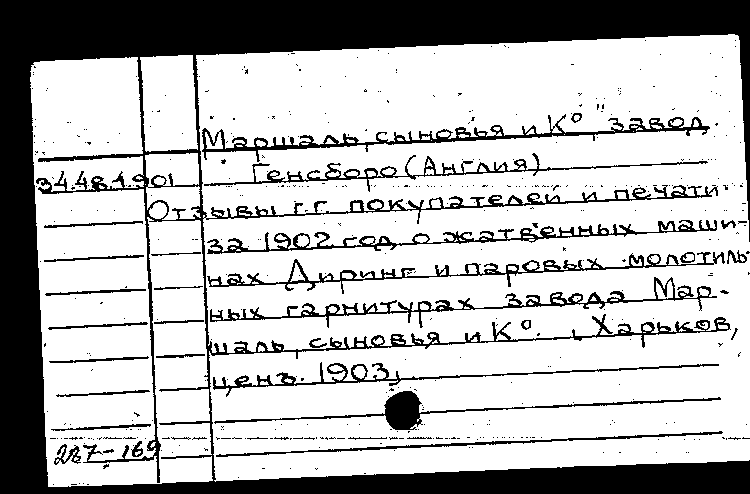 Маршаль, сыновья и К°", завод.
34.48.1.901 Генсборо (Англия)
Отзывы г.г. покупателей и печати
за 1902 год о жатвенных маши-
нах Диринг и паровых молотиль-
ных гарнитурах завода Мар-
шаль, сыновья и К°. , Харьков,
ценз. 1903,
287-169